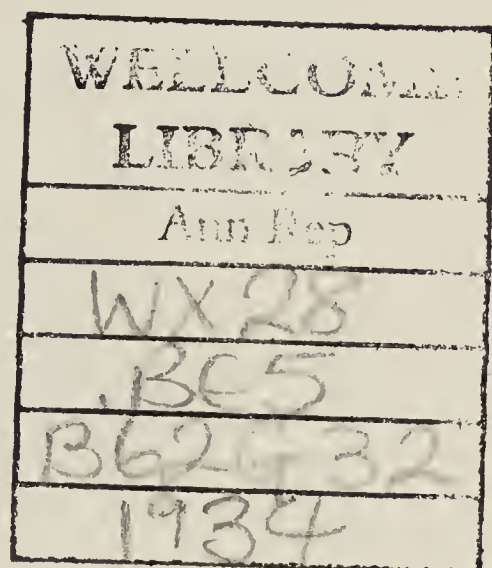 WELLCOME
LIBRARY
Ann Rep
WX28
.BE5
1934